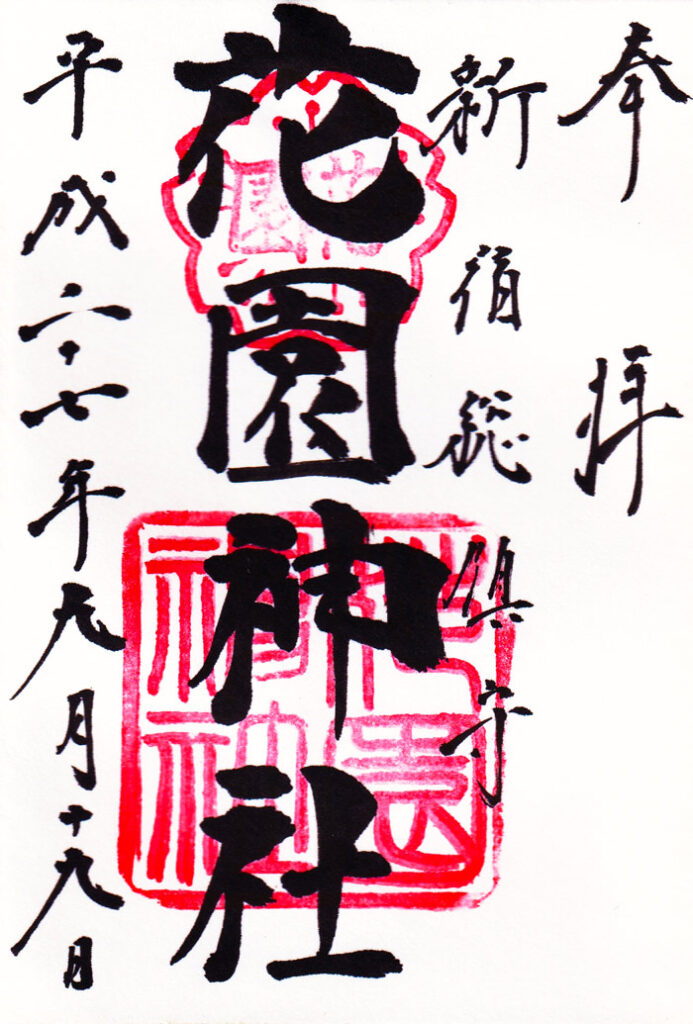 奉拝
新宿総鎮守
花園神社
平成二十七年九月十九日
花園
神社